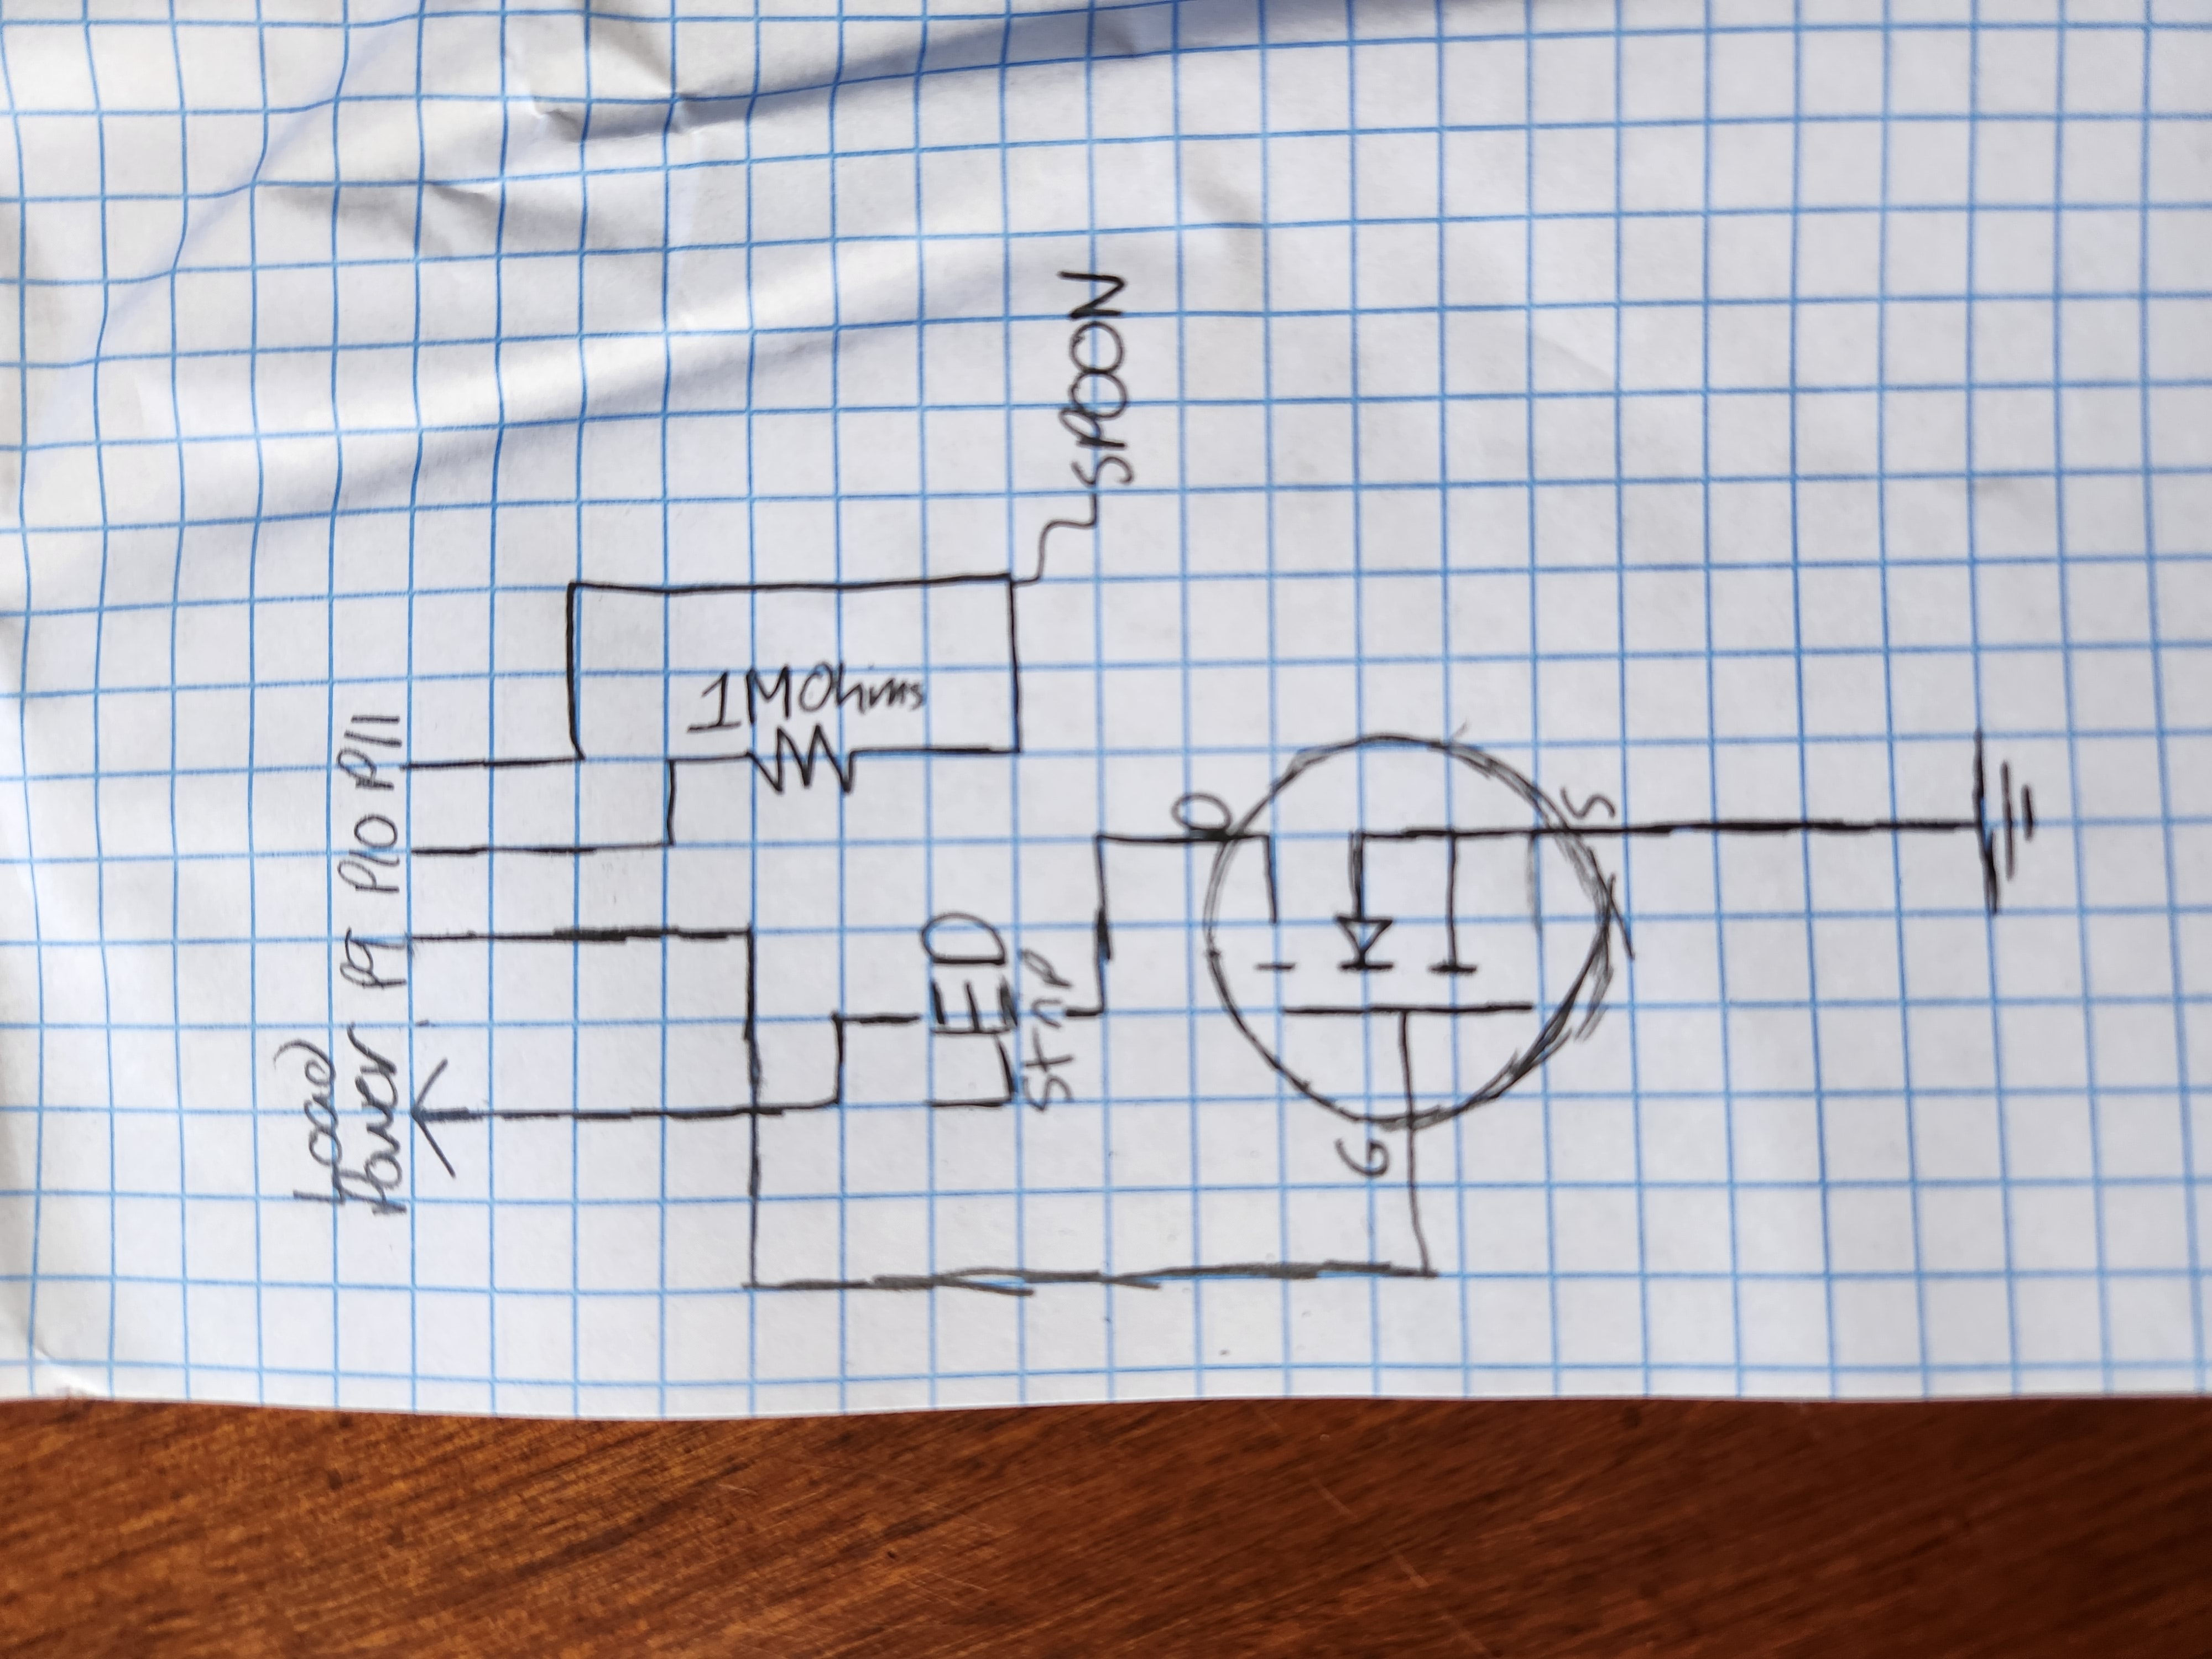 Load
Power P9 P10 P11
1MOhms
LED
Strip
SPOON
D
G
S